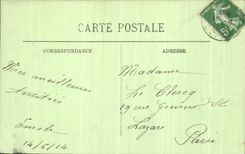 CARTE POSTALE
CORRESPONDANCE
ADRESSE
Mes meilleures
Amitiés
14/5/14
Madame
Le Clercq
29 rue
St
Lazare
Paris